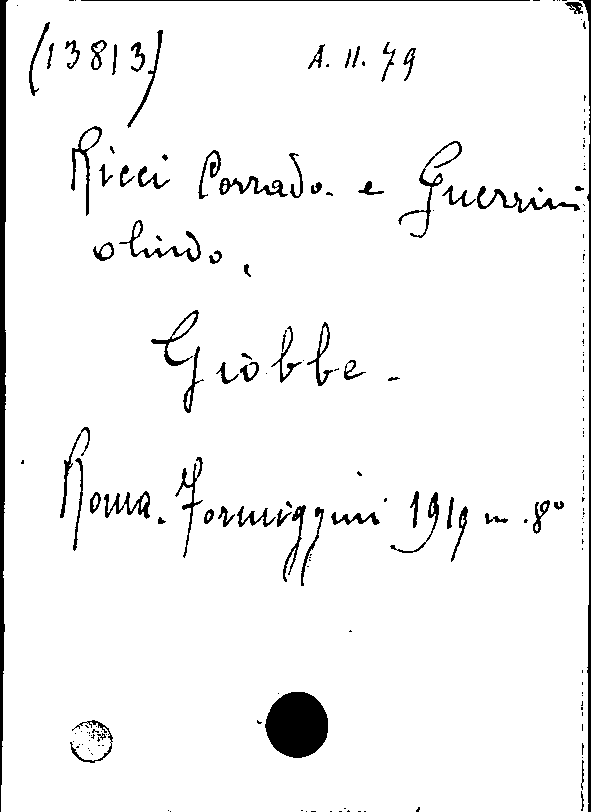 (13813) A. II. 79
Ricci Corrado. e Guerrini
olindo.
Giobbe.
Roma. Formiggini 1919 in. 8°